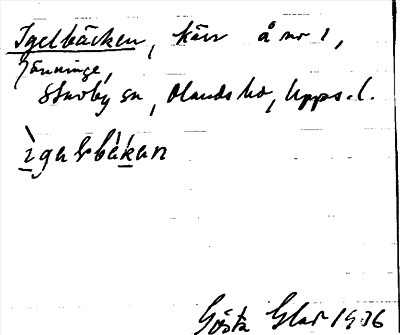 Igelbäcken, kärr å nr 1,
Jönninge,
Stavby sn, Olands hd, Upps. l.
ìgəlbäkən
Gösta Glas 1936